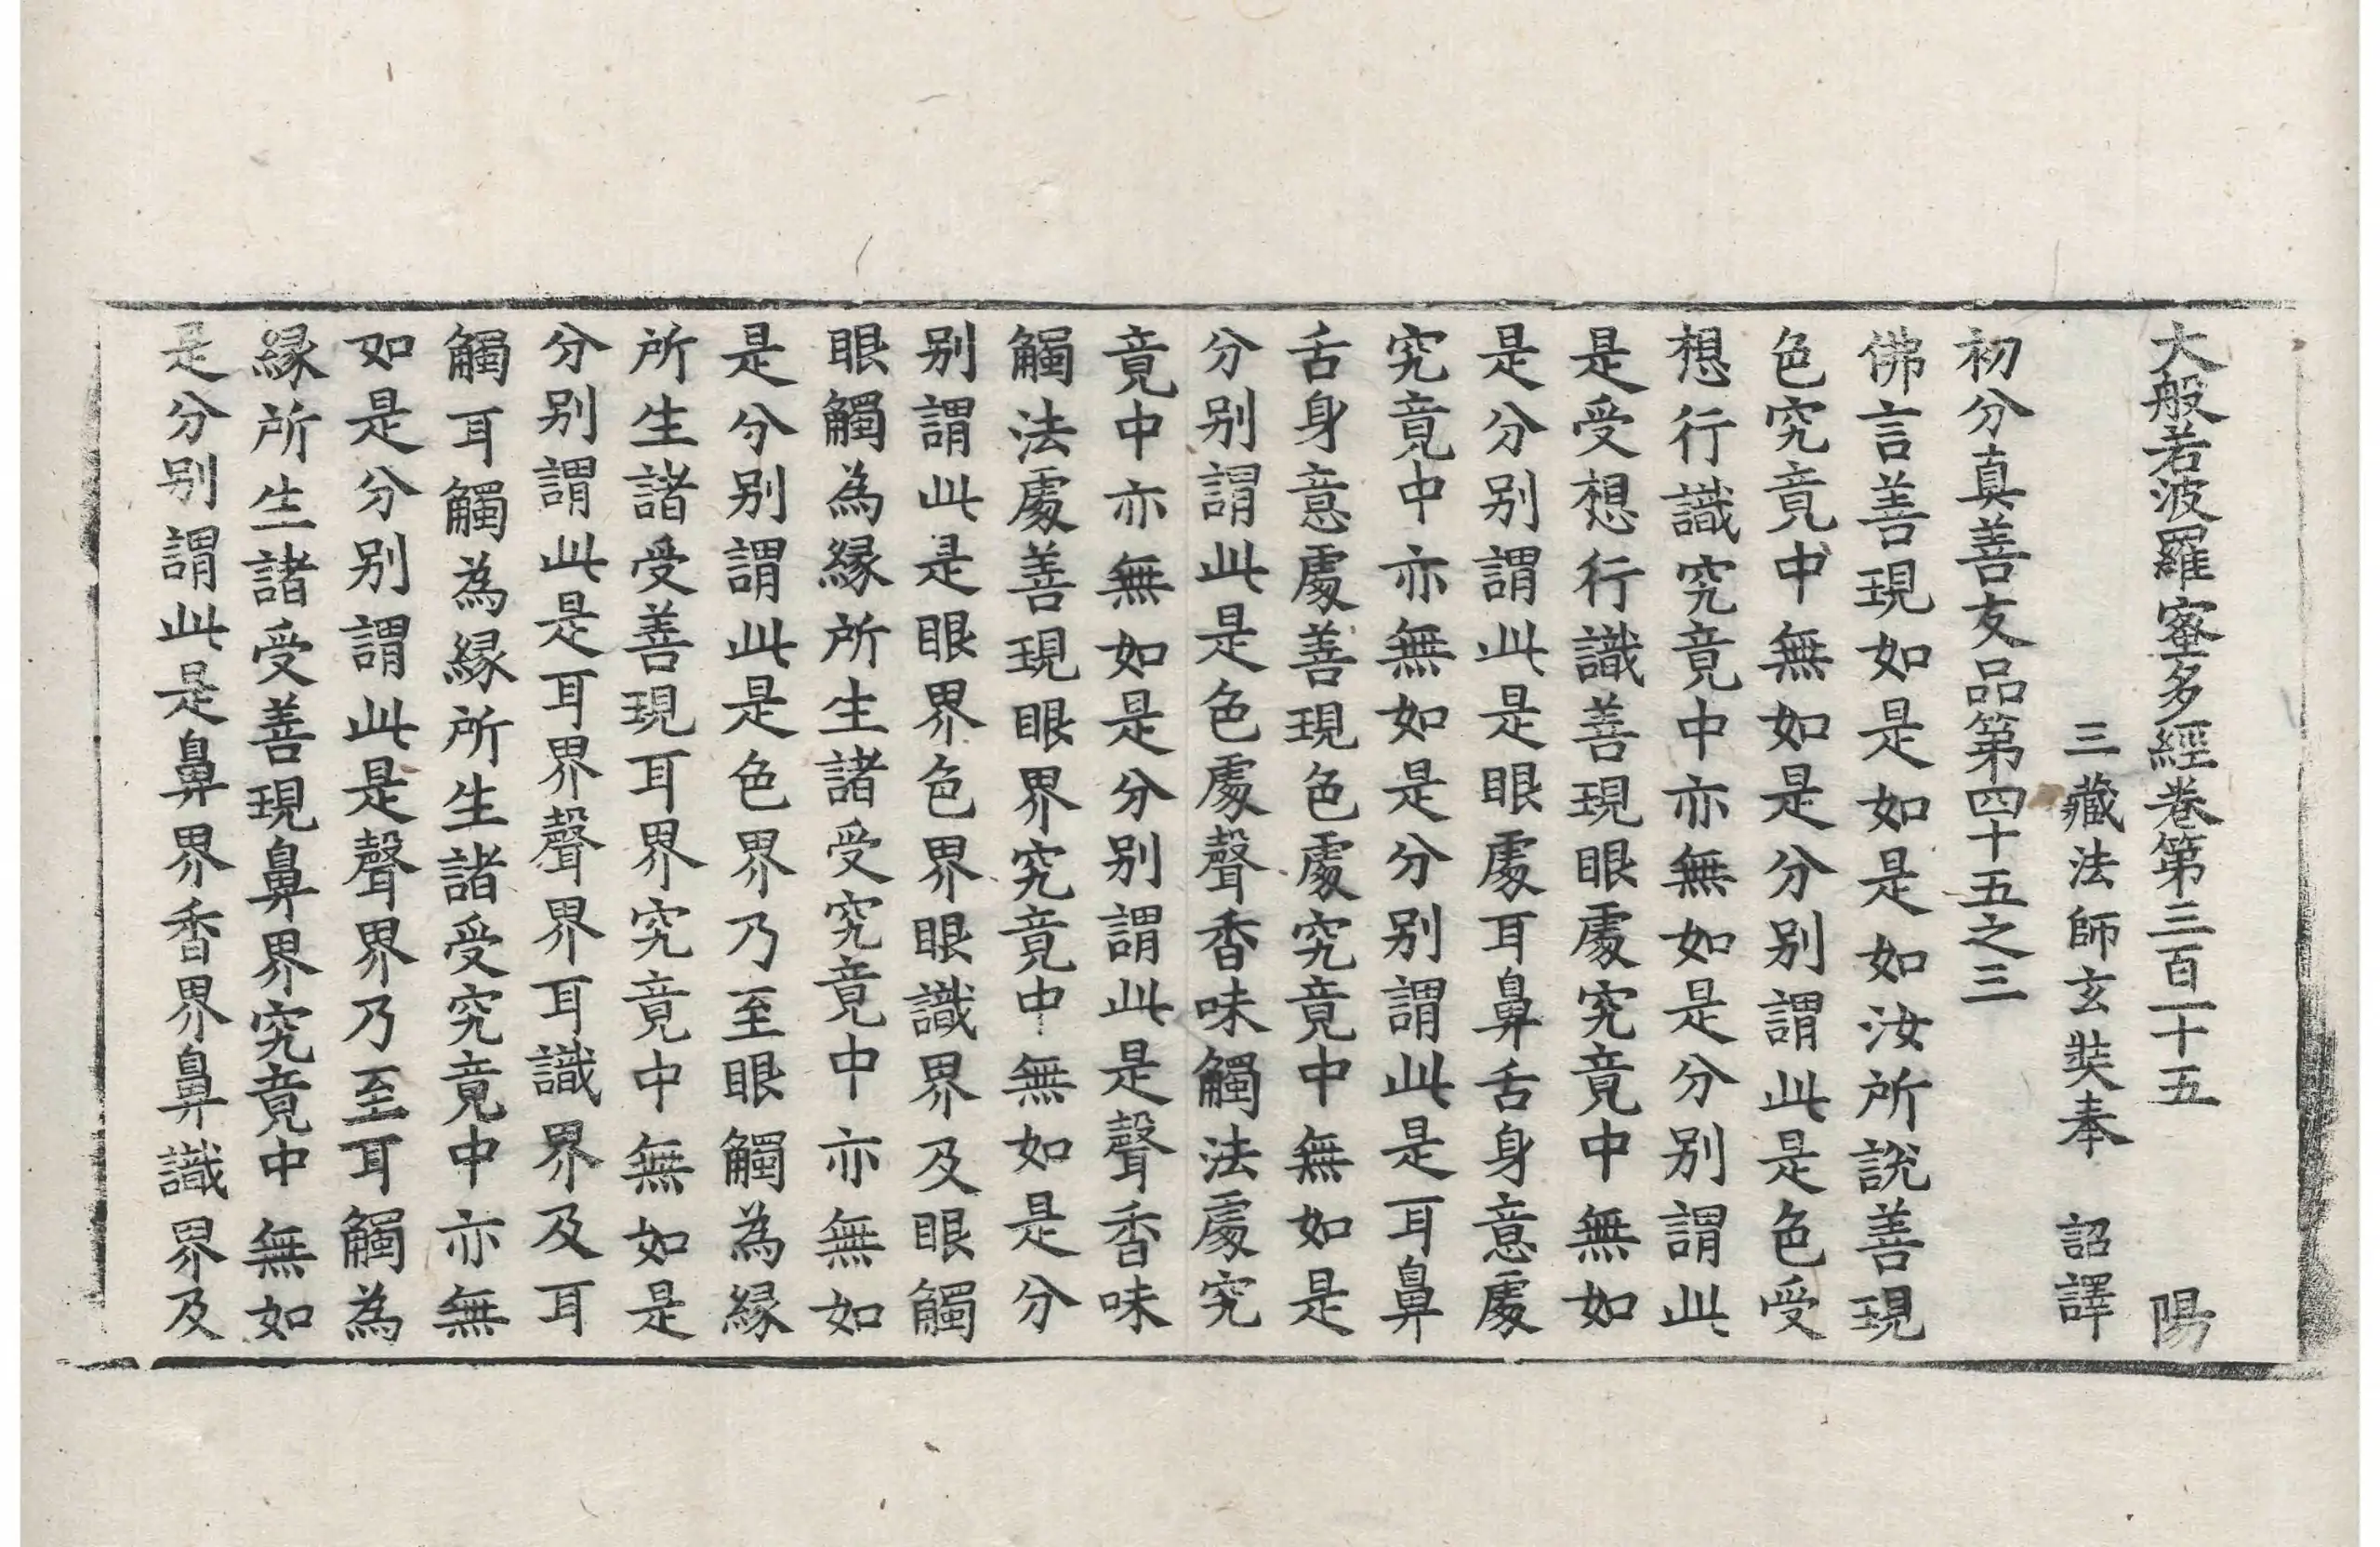 大般若波羅蜜多經卷第三百一十五　陽
三藏法師玄奘奉　詔譯
初分真善友品第四十五之三
佛言善現如是如是如汝所說善現
色究竟中無如是分别謂此是色受
想行識究竟中亦無如是分别謂此
是受想行識善現眼處究竟中無如
是分别謂此是眼處耳鼻舌身意處
究竟中亦無如是分别謂此是耳鼻
舌身意處善現色處究竟中無如是
分别謂此是色處聲香味觸法處究
竟中亦無如是分别謂此是聲香味
觸法處善現眼界究竟中無如是分
别謂此是眼界色界眼識界及眼觸
眼觸為緣所生諸受究竟中亦無如
是分别謂此是色界乃至眼觸為緣
所生諸受善現耳界究竟中無如是
分别謂此是耳界聲界耳識界及耳
觸耳觸為緣所生諸受究竟中亦無
如是分别謂此是聲界乃至耳觸為
緣所生諸受善現鼻界究竟中無如
是分别謂此是鼻界香界鼻識界及